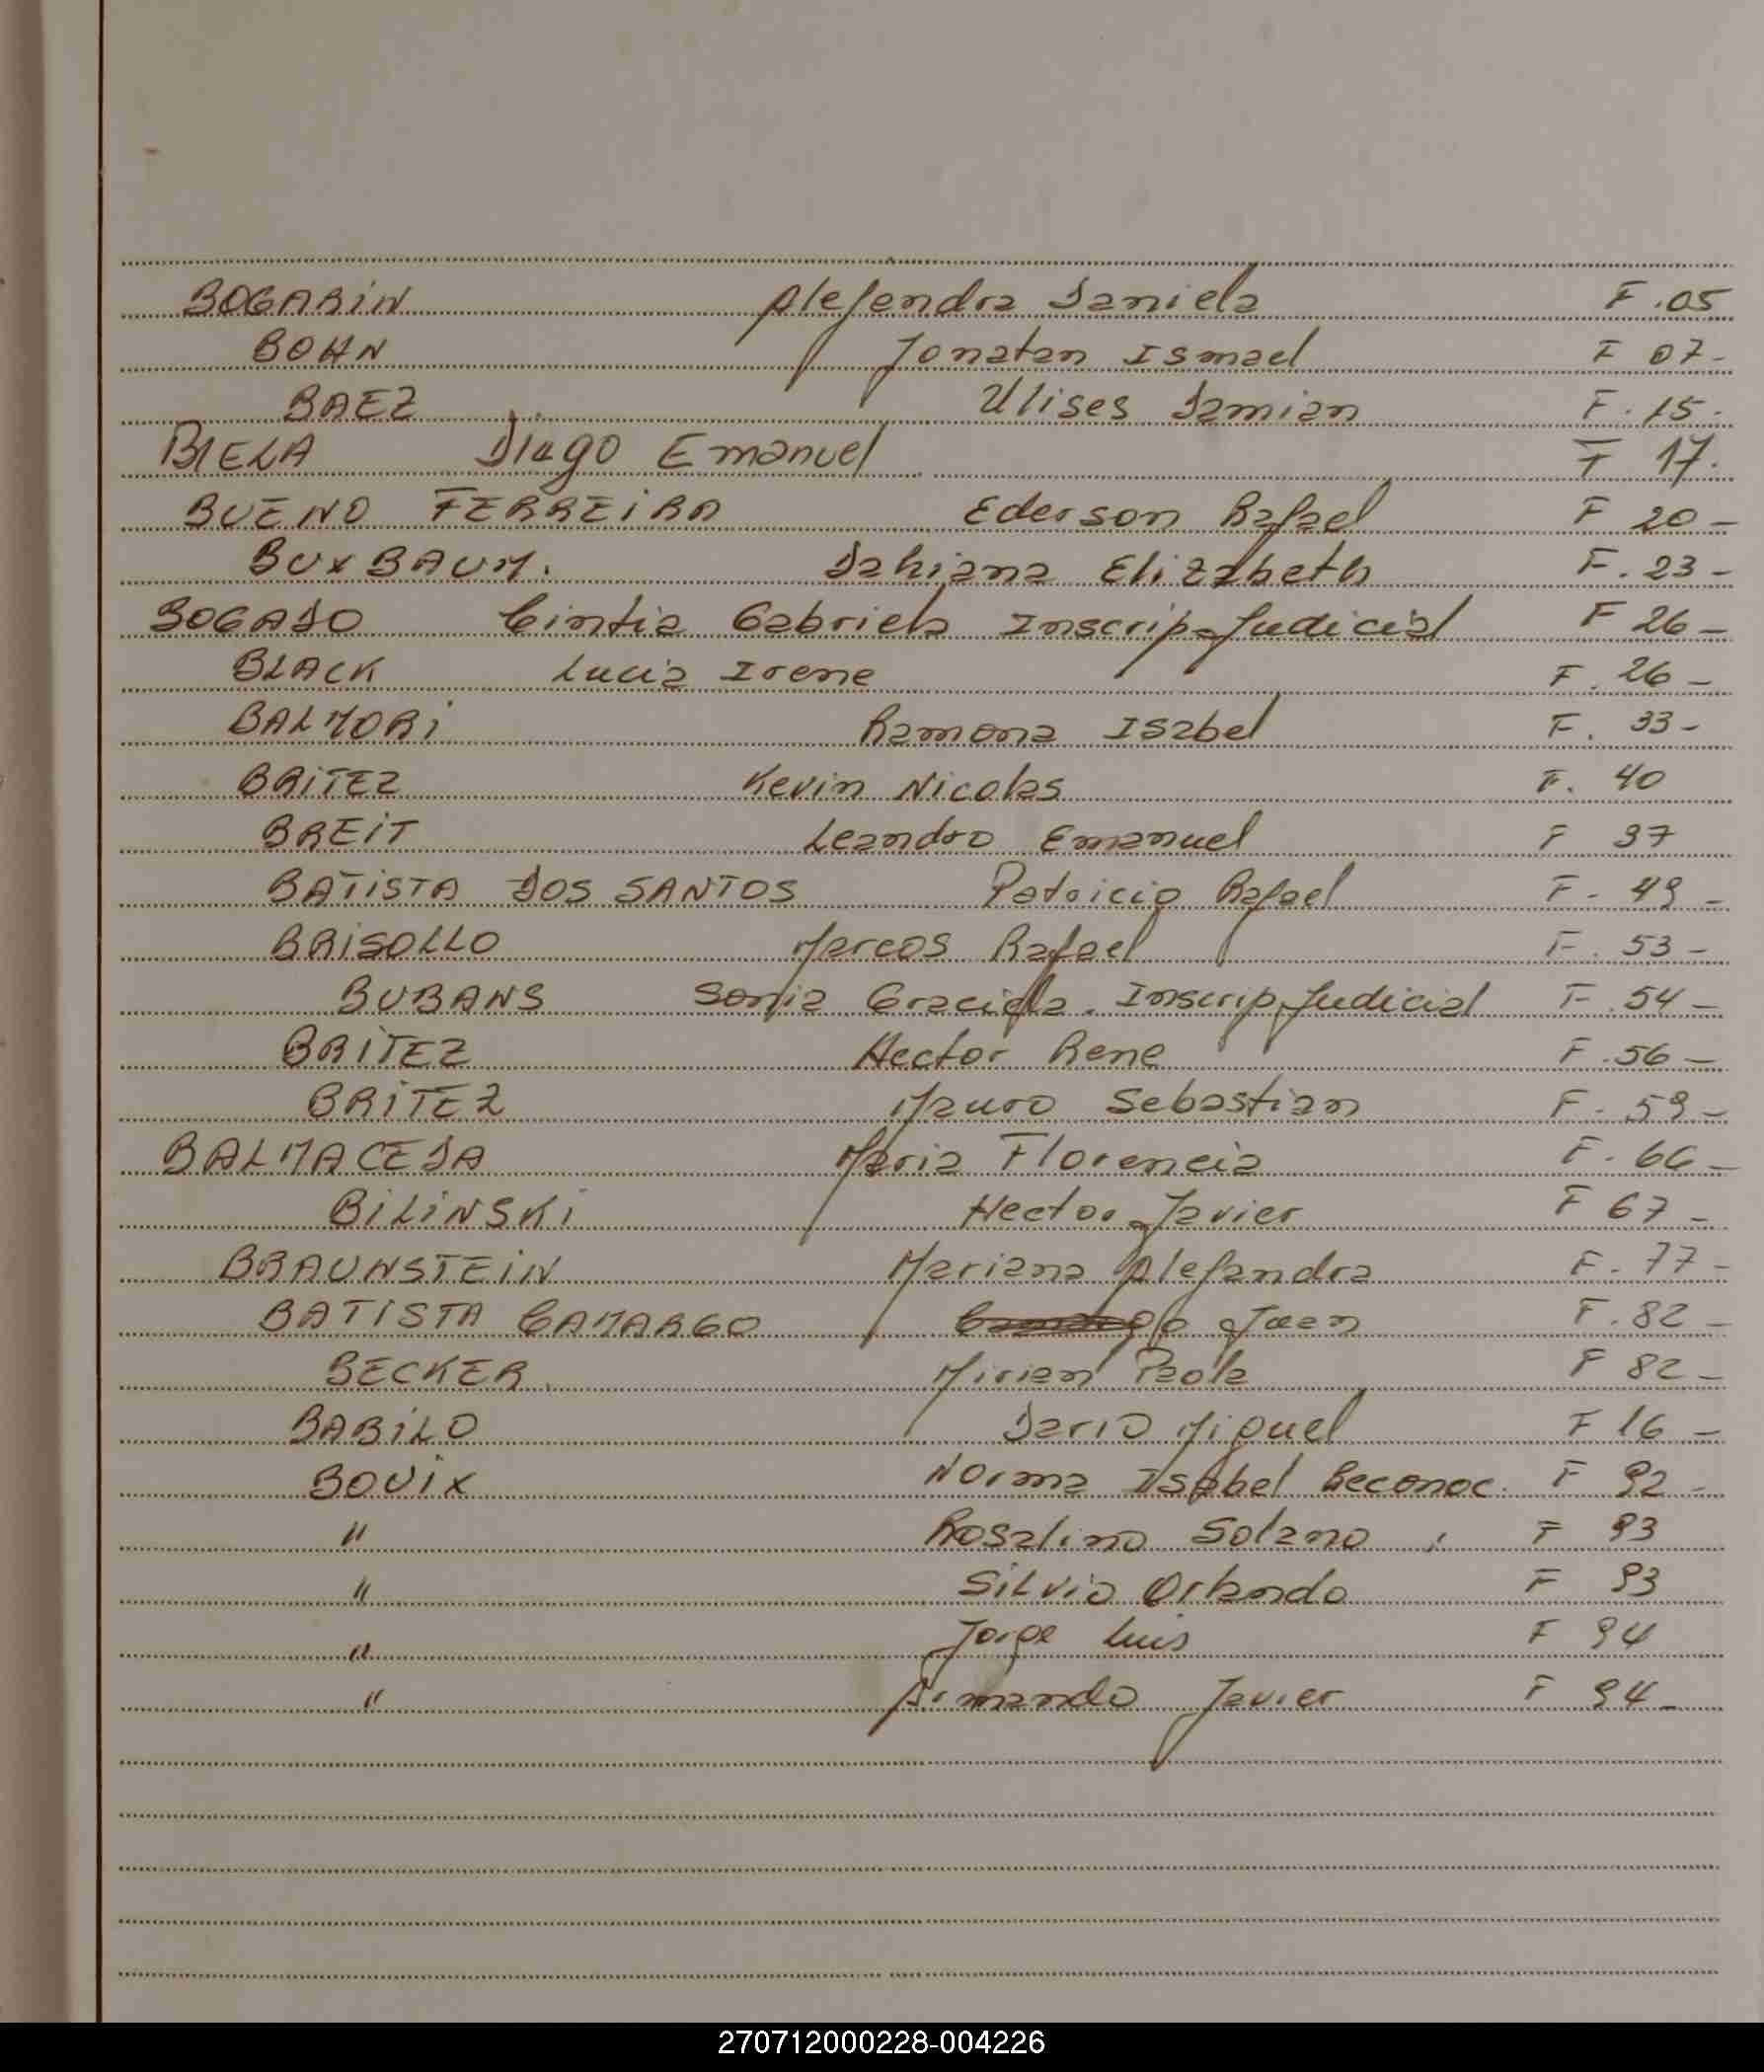 BOGARIN Alejandra Daniela F. 05
BOHN Jonatan Ismael F 07-
BAEZ Ulises Damian F. 15-
BIELA Diego Emanuel F 17.
BUENO FERREIRA Ederson Rafael F 20-
BUXBAUM. Dahiana Elizabeth F. 23-
BOGADO Cintia Gabriela Inscrip. Judicial F 26-
BLACK Lucia Irene F. 26-
BALMORI Ramona Isabel F. 33-
BRITEZ Kevin Nicolas F. 40
BREIT Leandro Emanuel F 37
BATISTA DOS SANTOS Patricio Rafael F. 49-
BRISOLLO Marcos Rafael F. 53-
BUBANS Sonia Graciela. Inscrip. Judicial F. 54-
BRITEZ Hector Rene F. 56-
BRITEZ Mauro Sebastian F. 59-
BALMACEDA Maria Florencia F. 66-
BILINSKI Hector Javier F 67-
BRAUNSTEIN Mariana Alejandra F. 77-
BATISTA CAMARGO Juan F. 82-
BECKER Mirian Paola F 82-
BABILO Dario Miguel F 16-
BOUIX Norma Isabel Reconoc. F 92-
" Rosalino Solano F 93
" Silvio Orlando F 93
" Jorge Luis F 94
" Armando Javier F 94-
270712000228-004226